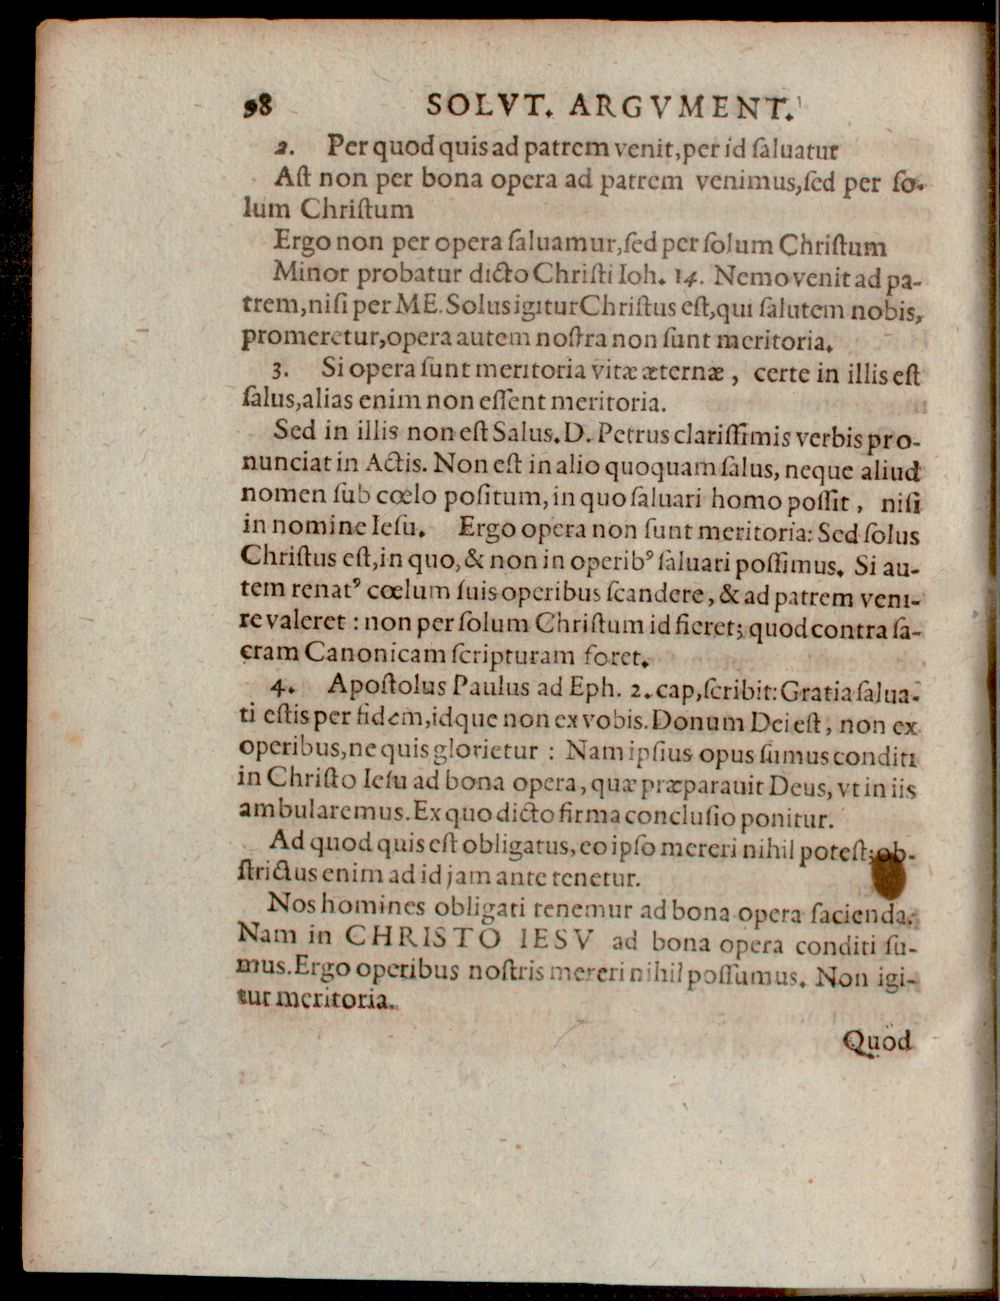 98 SOLVT. ARGVMENT.
2. Per quod quis ad patrem venit, per id ſaluatur
Aſt non per bona opera ad patrem venimus, ſed per ſo-
lum Chriſtum
Ergo non per opera ſaluamur, ſed per ſolum Chriſtum
Minor probatur dicto Chriſti Ioh. 14. Nemo venit ad pa-
trem, niſi per ME. Solus igitur Chriſtus eſt, qui ſalutem nobis,
promeretur, opera autem noſtra non ſunt meritoria.
3. Si opera ſunt meritoria vitæ æternæ, certe in illis eſt
ſalus, alias enim non eſſent meritoria.
Sed in illis non eſt Salus. D. Petrus clariſſimis verbis pro-
nunciat in Actis. Non eſt in alio quoquam ſalus, neque aliud
nomen ſub cœlo poſitum, in quo ſaluari homo poſſit, niſi
in nomine Ieſu. Ergo opera non ſunt meritoria: Sed ſolus
Chriſtus eſt, in quo, & non in operibꝰ ſaluari poſſimus. Si au-
tem renatꝰ cœlum ſuis operibus ſcandere, & ad patrem veni-
re valeret: non per ſolum Chriſtum id fieret; quod contra ſa-
cram Canonicam ſcripturam foret.
4. Apoſtolus Paulus ad Eph. 2. cap, ſcribit: Gratia ſalua-
ti eſtis per fidem, idque non ex vobis. Donum Dei eſt, non ex
operibus, ne quis glorietur: Nam ipſius opus ſumus conditi
in Chriſto Ieſu ad bona opera, quæ præparauit Deus, vt in iis
ambularemus. Ex quo dicto firma concluſio ponitur.
Ad quod quis eſt obligatus, eo ipſo mereri nihil poteſt; ob-
ſtrictus enim ad id jam ante tenetur.
Nos homines obligati tenemur ad bona opera facienda.
Nam in CHRISTO IESV ad bona opera conditi ſu-
mus. Ergo operibus noſtris mereri nihil poſſumus. Non igi-
tur meritoria.
Quod